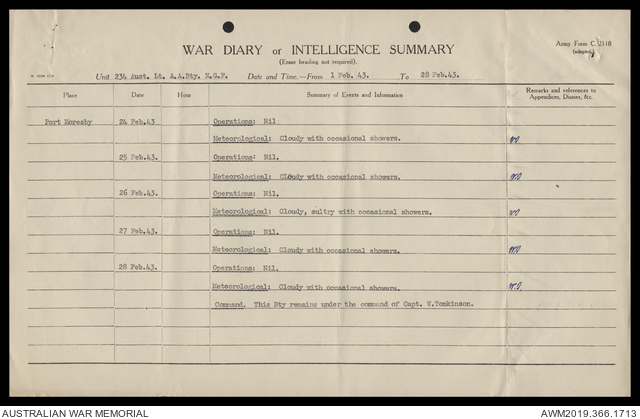 WAR DIARY or INTELLIGENCE SUMMARY
Army Form C. 2118
(adapted)
(Erase heading not required).
Unit 234 Aust. Lt. A.A.Bty. N.G.F. Date and Time.—From 1 Feb. 43. To 28 Feb.43.
Place Date Hour Summary of Events and Information Remarks and references to Appendices, Diaries, &c.
Port Moresby 24 Feb.43 Operations: Nil
Meteorological: Cloudy with occasional showers.
25 Feb.43. Operations: Nil.
Meteorological: Cloudy with occasional showers.
26 Feb.43. Operations: Nil.
Meteorological: Cloudy, sultry with occasional showers.
27 Feb.43. Operations: Nil.
Meteorological: Cloudy with occasional showers.
28 Feb.43. Operations: Nil.
Meteorological: Cloudy with occasional showers.
Command. This Bty remains under the command of Capt. W.Tomkinson.
AUSTRALIAN WAR MEMORIAL AWM2019.366.1713